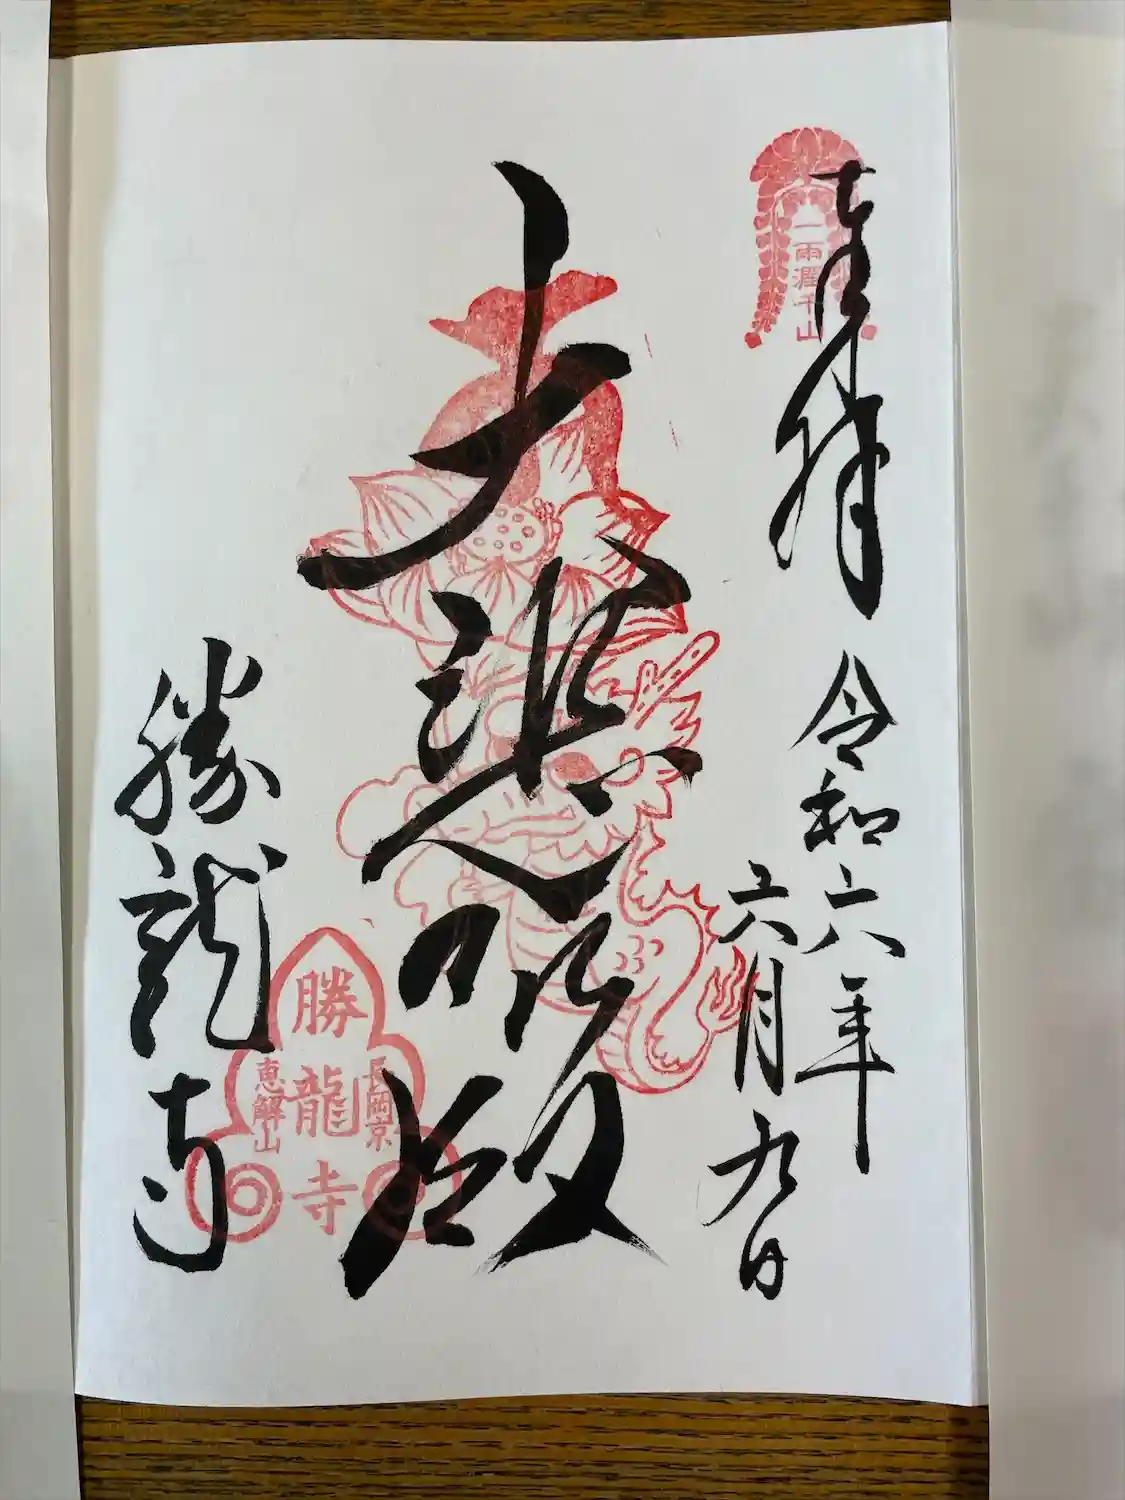 奉拝
一雨潤千山
令和六年
六月九日
大悲殿
勝龍寺
長岡京
勝龍寺
恵解山